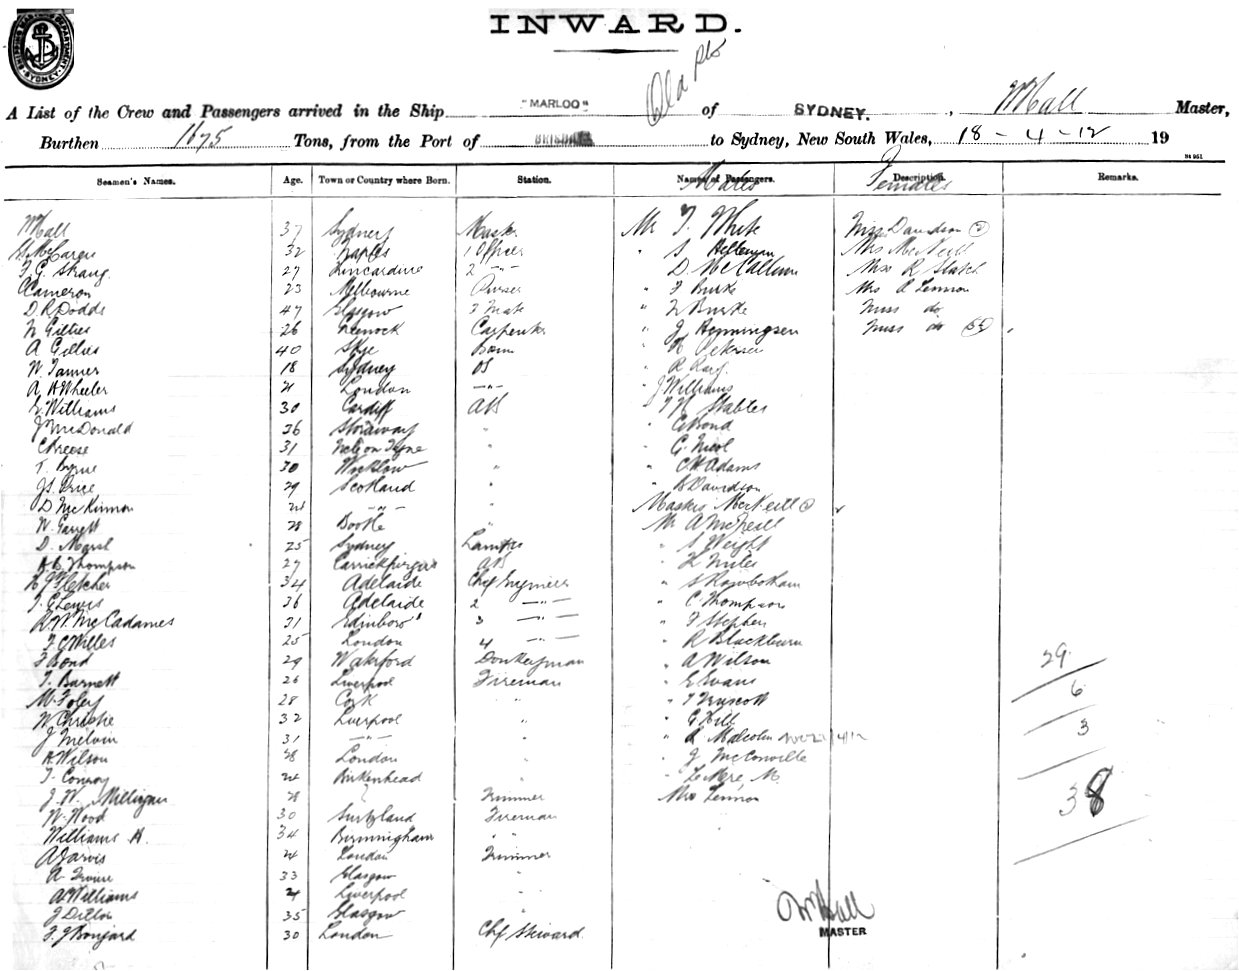 SHIPPING MASTERS DEPARTMENT. SYDNEY.
INWARD.
Old
A List of the Crew and Passengers arrived in the Ship "MARLOO" of SYDNEY. , W Hall Master,
Burthen 1675 Tons, from the Port of BRISBANE to Sydney, New South Wales, 18-4-12 19
St 951
Seamen's Names. Age. Town or Country where Born. Station. Names of Passengers. Males Description. Females Remarks.
W Hall 37 Sydney Master Mr T. White Miss Davidson
32 Naples 1 Officer " S Mrs McNeill
27 Kincardine 2 -"- D. McCallum Miss R
Cameron 23 Melbourne Purser " F Burke Mrs Lennon
D R Dodds 47 Glasgow 3 Mate " Burke Miss do
N Gillies 26 Greenock Carpenter " J Henningsen Miss do
A Gillies 40 Skye " Petersen
W. Tanner 18 Sydney OS " R Ray
A H Wheeler 21 London -"- " J Williams
Williams 30 Cardiff AB " Stables
J McDonald 36 Stornaway " " Bond
C Breese 31 " " G. Nicol
T. Byrne 30 Wicklow " " C H Adams
J S. Price 29 Scotland " " Davidson
D McKinnon -"- " Master McNeill
W. Garrett 28 Bootle " Mr A McNeill
D. Marsh 25 Sydney Lamps " S Wright
Thompson 27 Carrickfergus AB " Miles
Fletcher 34 Adelaide Chf Engineer " S Rowbotham
Lewis 36 Adelaide 2 -"- " C Thompson
R. W. McCadames 31 Edinboro' 3 -"- " F Stephen
F C Willes 25 London 4 -"- " R Blackburn
F Bond 29 Waterford Donkeyman " A Wilson 29
T. Barnett 26 Liverpool Fireman " E Evans 6
M. Foley 28 Cork " " T Truscott
W Christie 32 Liverpool " " G Hill 3
J Melvin 31 -"- " " R Malcolm
A Wilson 28 London " " J McConville
T. Conroy 24 Birkenhead " "
J. W. Milligan 28 Trimmer Mrs Lennon 38
W. Wood 30 Fireman
Williams H. 34 Birmingham " "
A Jarvis 24 London Trimmer
A. Irvine 33 Glasgow "
A Williams Liverpool "
J Dillon 35 Glasgow "
F. J Bongard 30 London Chf Steward
W Hall
MASTER